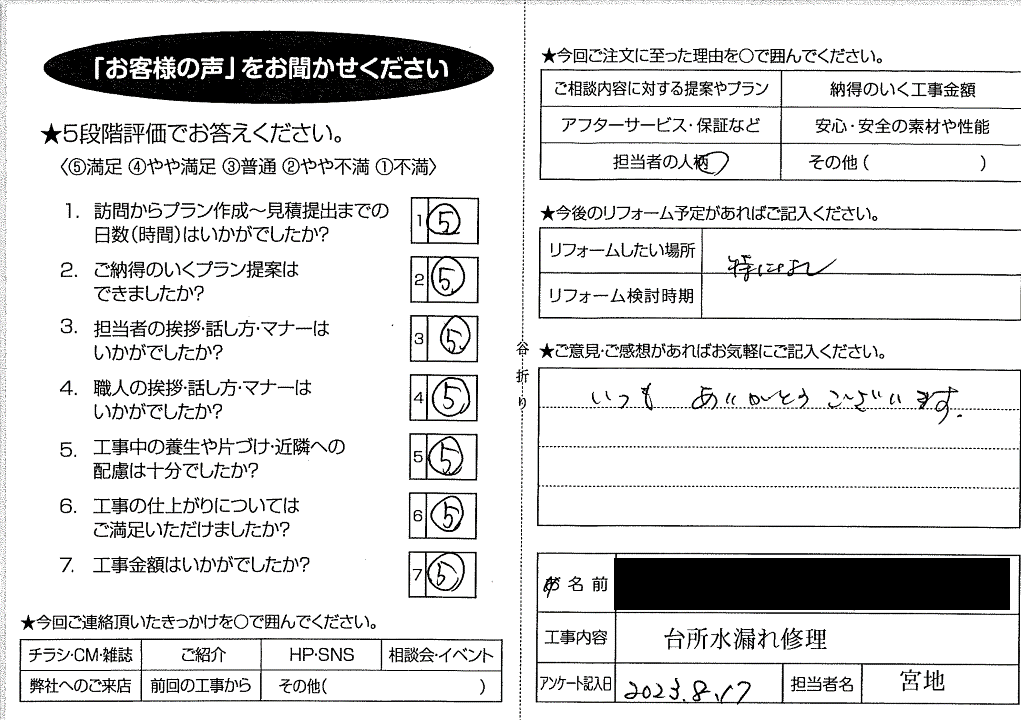 「お客様の声」をお聞かせください
★5段階評価でお答えください。
〈⑤満足 ④やや満足 ③普通 ②やや不満 ①不満〉
1. 訪問からプラン作成～見積提出までの
日数(時間)はいかがでしたか?
1 5
2. ご納得のいくプラン提案は
できましたか?
2 5
3. 担当者の挨拶・話し方・マナーは
いかがでしたか?
3 5
4. 職人の挨拶・話し方・マナーは
いかがでしたか?
4 5
5. 工事中の養生や片づけ・近隣への
配慮は十分でしたか?
5 5
6. 工事の仕上がりについては
ご満足いただけましたか?
6 5
7. 工事金額はいかがでしたか?
7 5
★今回ご連絡頂いたきっかけを〇で囲んでください。
チラシ・CM・雑誌 ご紹介 HP・SNS 相談会・イベント
弊社へのご来店 前回の工事から その他( )
谷折り
★今回ご注文に至った理由を〇で囲んでください。
ご相談内容に対する提案やプラン 納得のいく工事金額
アフターサービス・保証など 安心・安全の素材や性能
担当者の人柄 その他( )
★今後のリフォーム予定があればご記入ください。
リフォームしたい場所 特になし
リフォーム検討時期
★ご意見・ご感想があればお気軽にご記入ください。
いつも ありがとうございます。
名前
工事内容 台所水漏れ修理
アンケート記入日 2023.8.17 担当者名 宮地